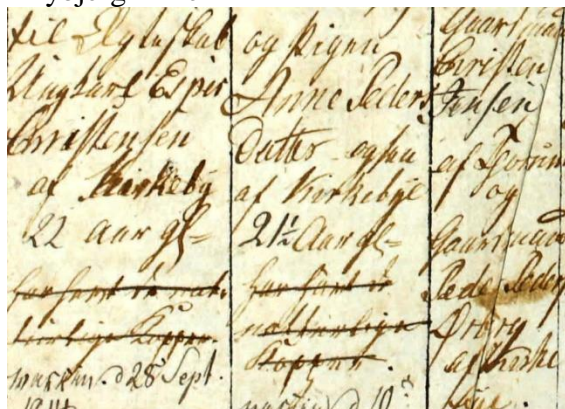 til Ægteskab
Ungkarl Espir
Christensen
af Kirkebÿ
22 aar gl=
har havt de nat-
turlige Kopper.
vaccin. d 28 Sept.
og Pigen
Anne Peders
Datter ogsaa
af Kirkebÿe
21½ Aar gl=
har havt de
natturlige
Kopper.
vaccin d 10
Gaardmand
Christen
Jensen
af
og
Gaardmand
Peder Peders
af Kirke
bye.